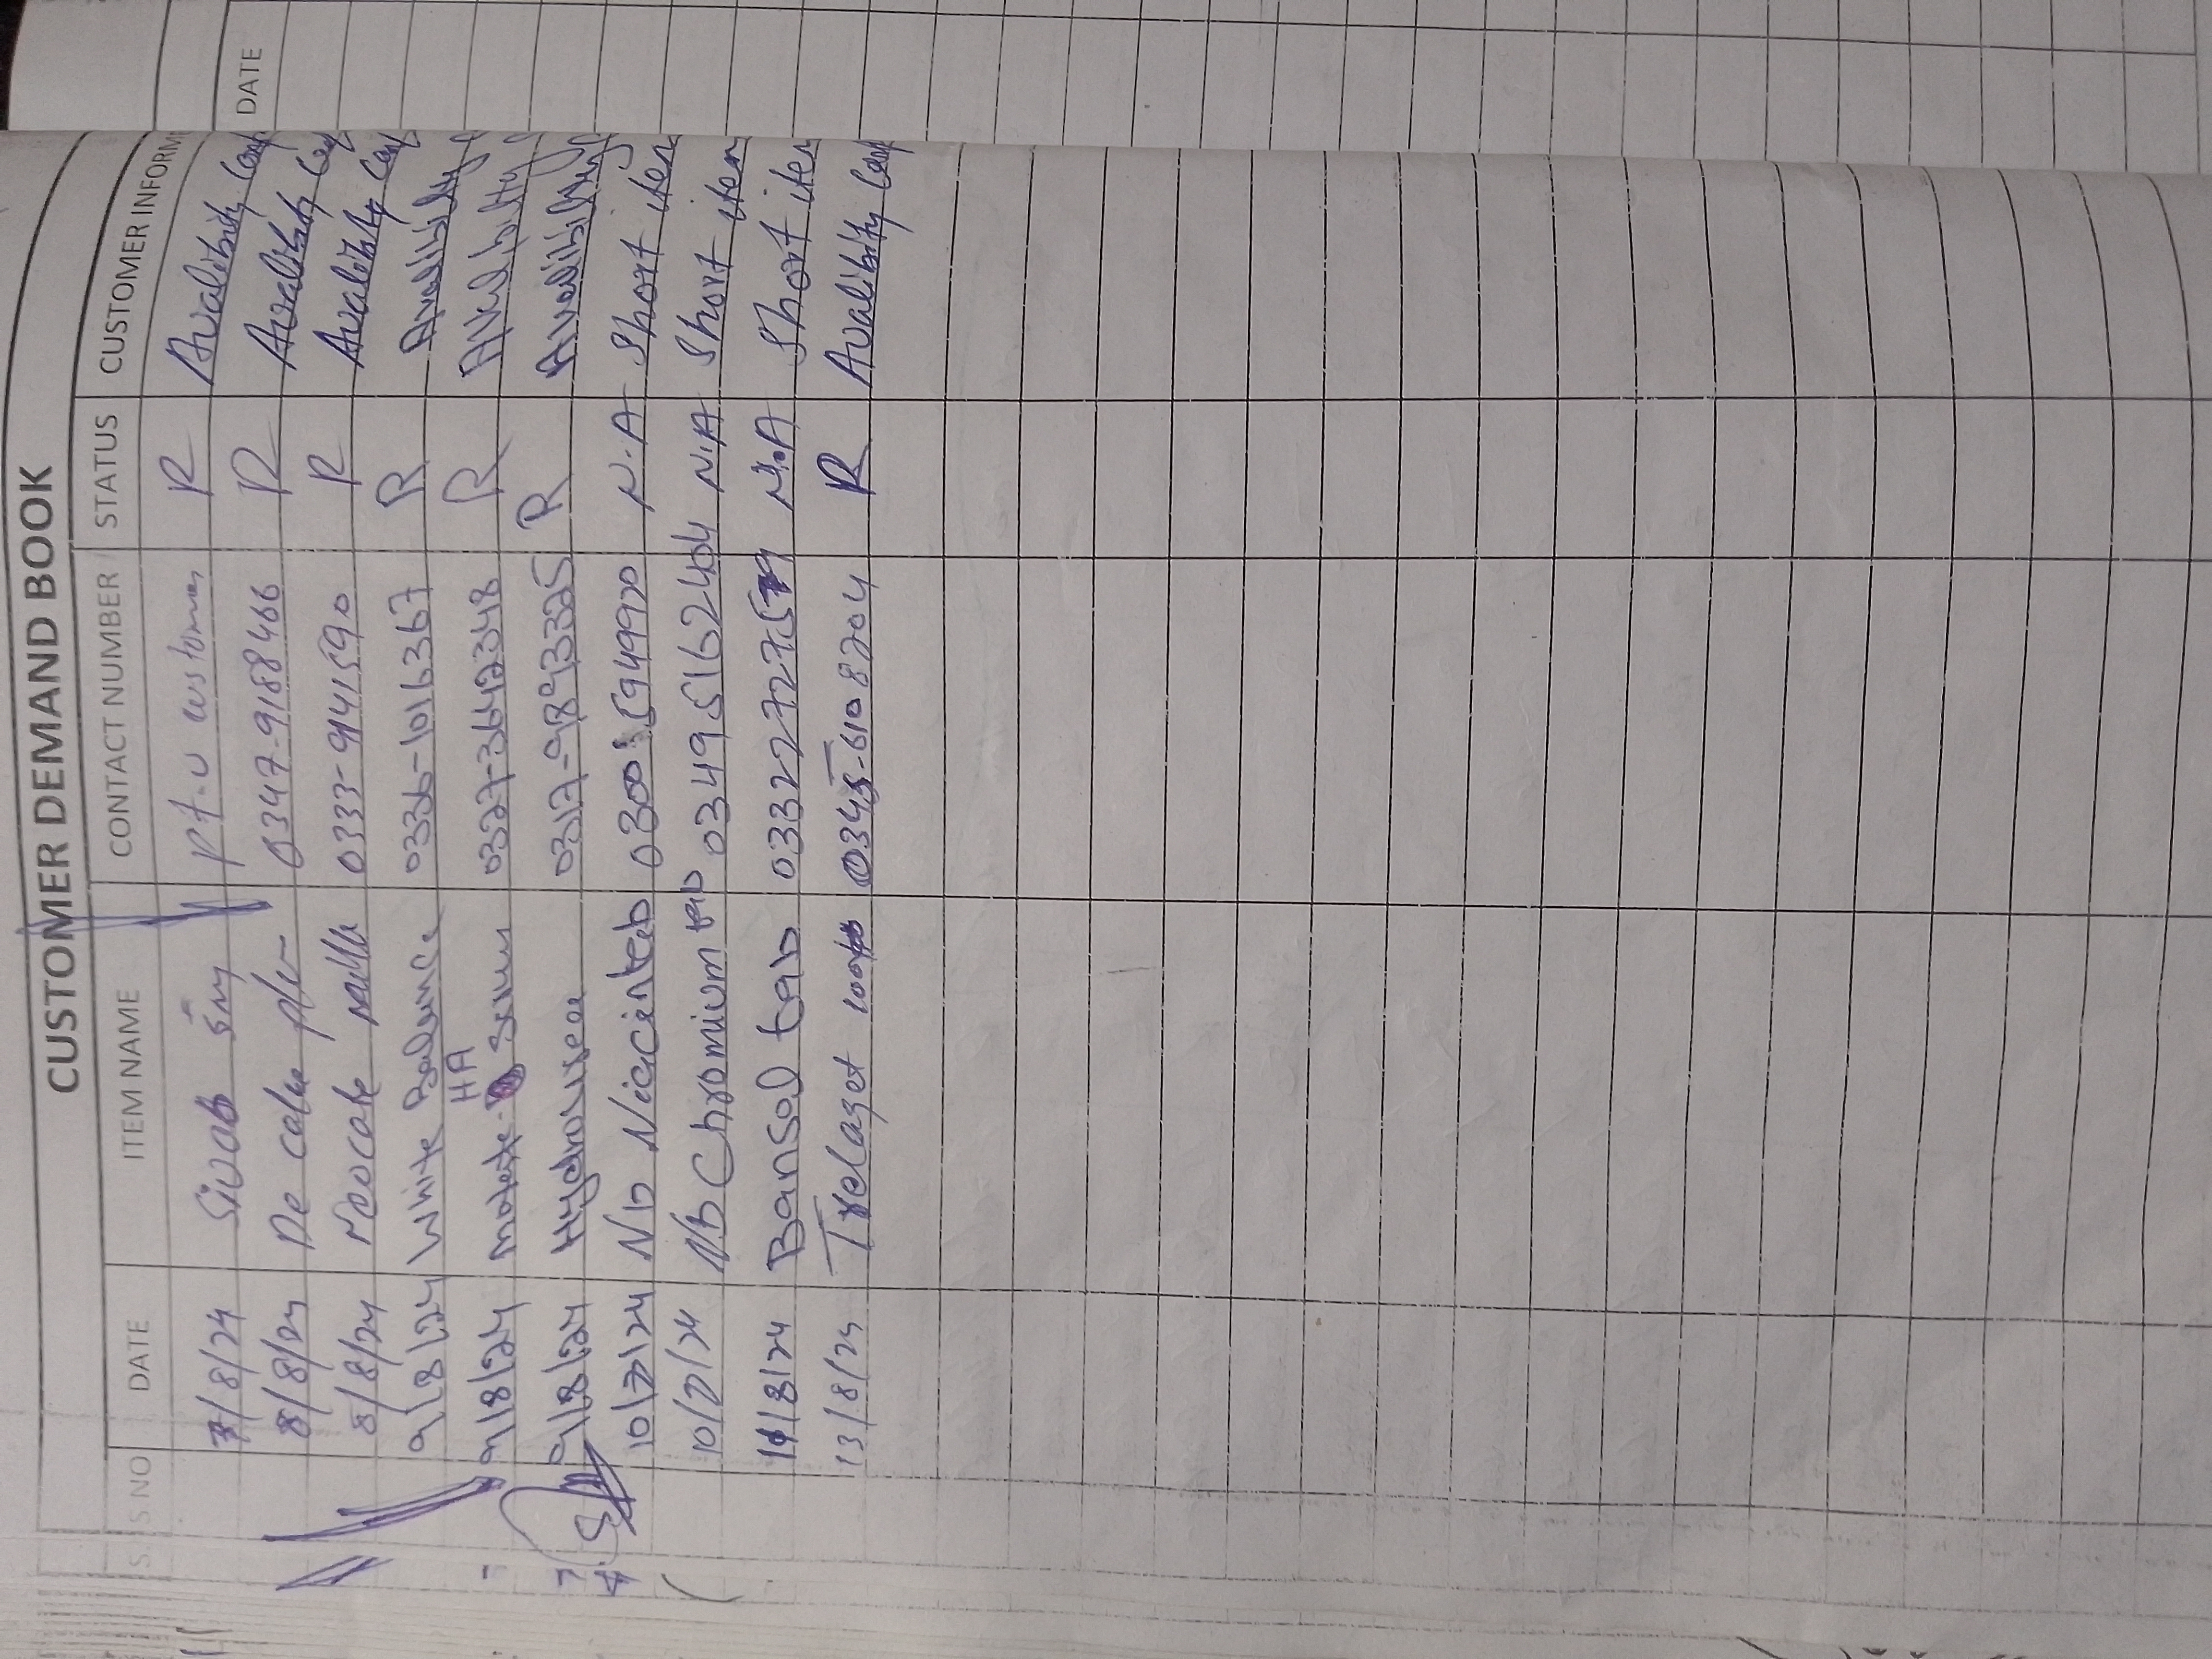 CUSTOMER DEMAND BOOK
S NO DATE ITEM NAME CONTACT NUMBER STATUS CUSTOMER INFORM
7/8/24 Sivab 5mg customer R Avalibity
8/8/24 De cake 0347-9188466 R Avalibity
8/8/24 Neocate 0333-9415590 R Avalibity
9/8/24 White Balance 0336-1016367 R Availibility
HA
9/8/24 Serum 0327-3642348 R Availibility
9/8/24 Hydroxyrea 0317-9893325 R Availibility
10/7/24 Nb Niacin tab 0300 5949920 N.A Short item
10/7/24 Nb Chromium tab 03495162404 N.A Short item
11/8/24 Bansol tab N.A Short item
13/8/24 Trelaget 0345-6108204 R Avalibity
DATE